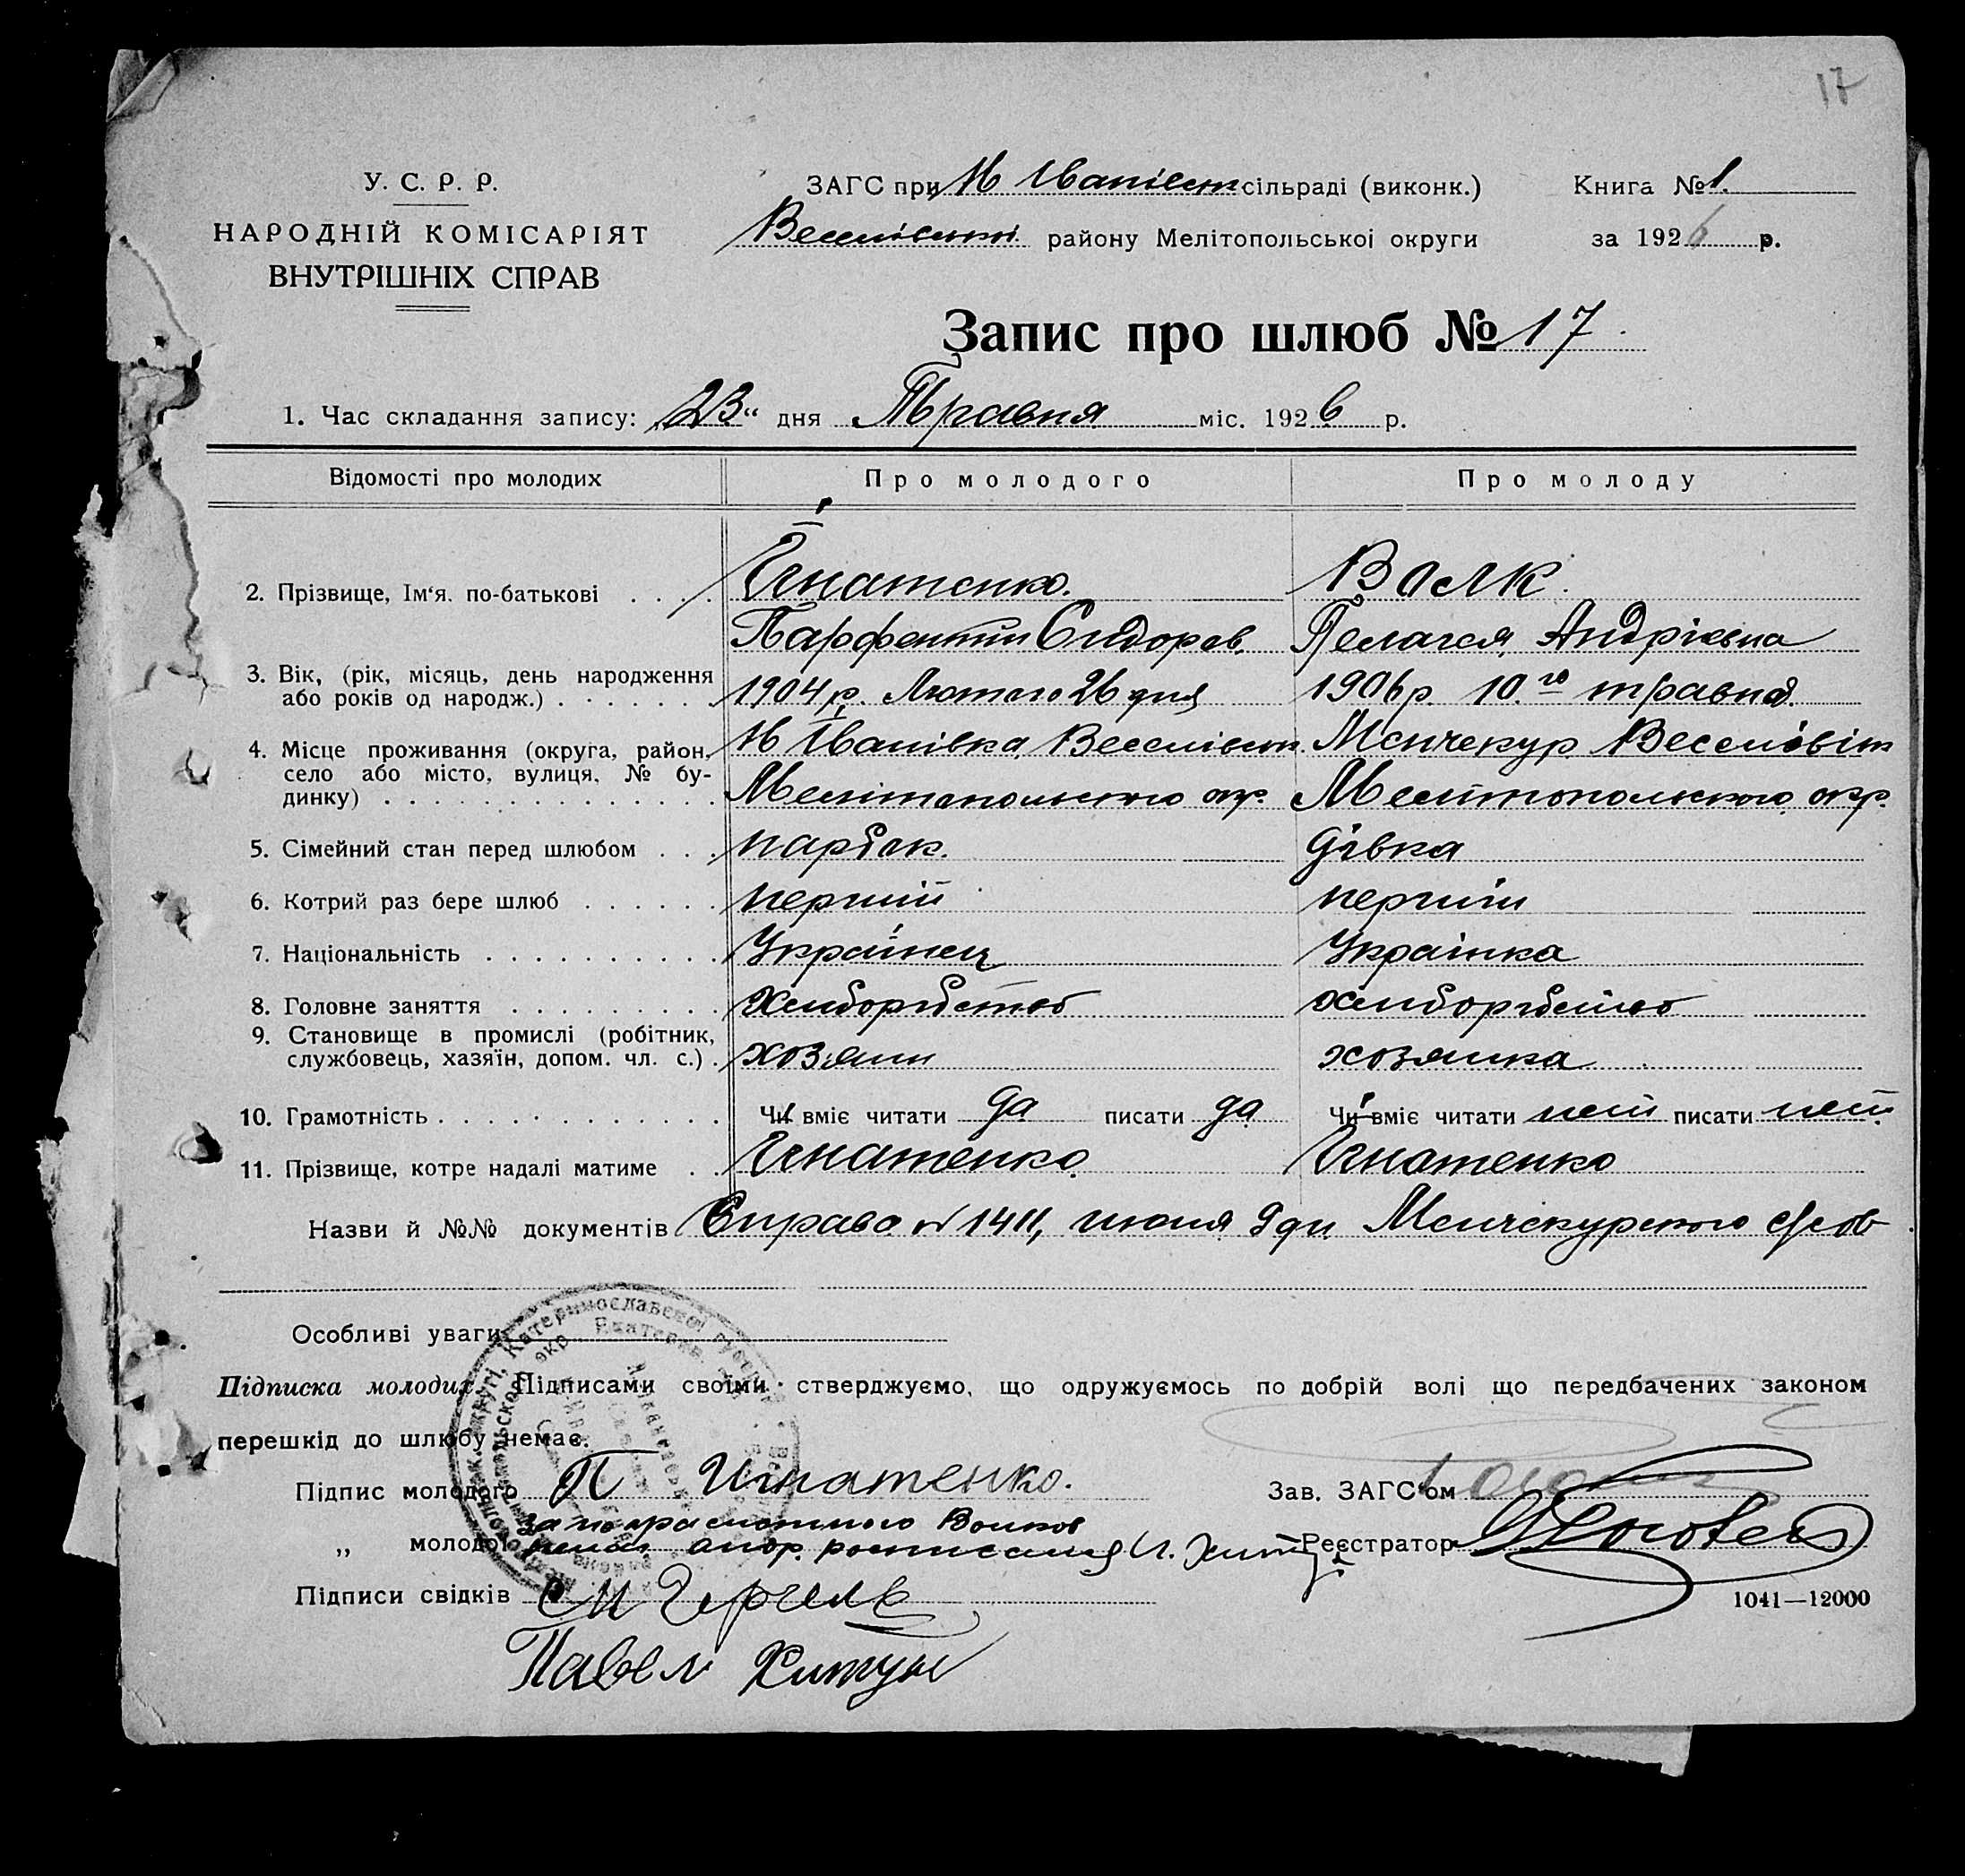 17
У. С. Р. Р.
НАРОДНІЙ КОМІСАРІЯТ
ВНУТРІШНІХ СПРАВ
ЗАГС при Н Іванівськ сільраді (виконк.) Книга № 1.
Веселівської району Мелітопольської округи за 1926 р.
Запис про шлюб № 17
1. Час складання запису: 23" дня Травня міс. 1926 р.
Відомості про молодих Про молодого Про молоду
2. Прізвище, Ім'я. по-батькові Ігнатенко. Волк.
Парфентий Сидоров. Пелагея Андріевна
3. Вік, (рік, місяць, день народження
або років од народж.) 1904 р. Лютого 26 дня 1906 р. 10.го травня.
4. Місце проживання (округа, район,
село або місто, вулиця, № будинку) Н Іванівка Веселівськ. Менчекур Веселовіт
Мелітопольського окр. Мелітопольского окр.
5. Сімейний стан перед шлюбом парубок. дівка
6. Котрий раз бере шлюб перший перший
7. Національність Українец Українка
8. Головне заняття Хлиборобство хлиборобство
9. Становище в промислі (робітник,
службовець, хазяїн, допом. чл. с.) хозяин хозяйка
10. Грамотність Чи вміє читати да писати да Чи вміє читати нет писати нет.
11. Прізвище, котре надалі матиме Игнатенко Игнатенко
Назви й №№ документів Справа № 1411, июня 9 дн Менчекурского
Особливі уваги
Підписка молодих. Підписами своїми стверджуємо, що одружуємось по добрій волі що передбачених законом
перешкід до шлюбу немає.
Підпис молодого П Игнатенко. Зав. ЗАГС'ом
„ молодої Реєстратор
Підписи свідків
1041—12000
Павел Хитун